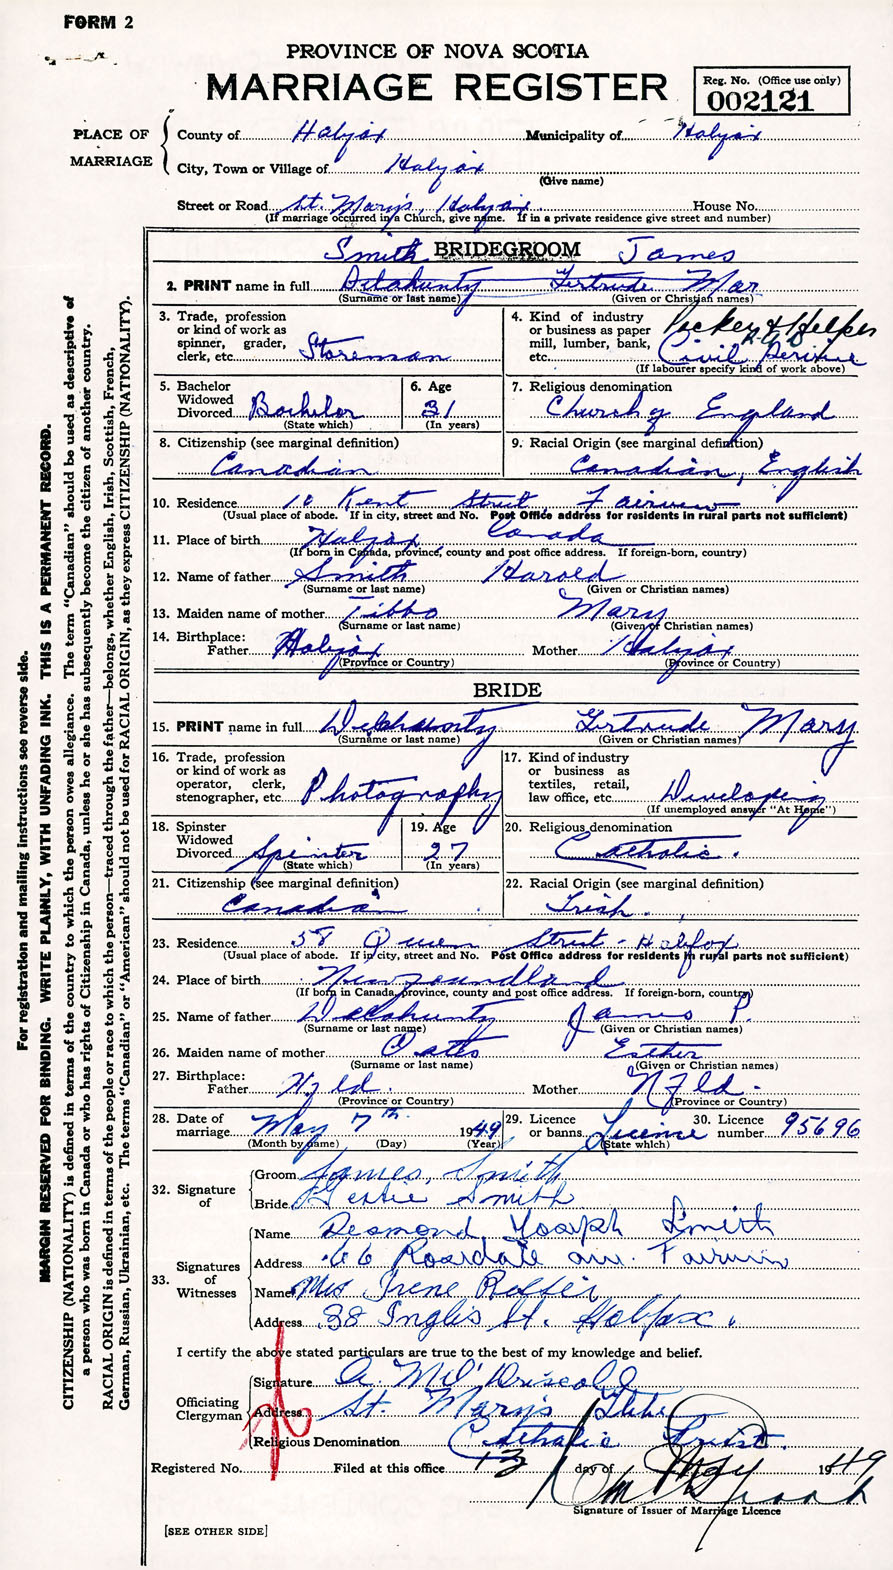 FORM 2
PROVINCE OF NOVA SCOTIA
MARRIAGE REGISTER
Reg. No. (Office use only)
002121
PLACE OF MARRIAGE
County of Halifax Municipality of Halifax
City, Town or Village of Halifax
(Give name)
Street or Road St. Mary's, Halifax House No.
(If marriage occurred in a Church, give name. If in a private residence give street and number)
Smith BRIDEGROOM James
2. PRINT name in full Delahunty Gertrude Mar
(Surname or last name) (Given or Christian names)
3. Trade, profession or kind of work as spinner, grader, clerk, etc. Storeman
4. Kind of industry or business as paper mill, lumber, bank, etc. Packer & Helper Civil Service
(If labourer specify kind of work above)
5. Bachelor Widowed Divorced Bachelor
(State which)
6. Age 31
(In years)
7. Religious denomination
Church of England
8. Citizenship (see marginal definition)
Canadian
9. Racial Origin (see marginal definition)
Canadian, English
10. Residence 10 Kent Street, Fairview
(Usual place of abode. If in city, street and No. Post Office address for residents in rural parts not sufficient)
11. Place of birth Halifax Canada
(If born in Canada, province, county and post office address. If foreign-born, country)
12. Name of father Smith Harold
(Surname or last name) (Given or Christian names)
13. Maiden name of mother Tibbo Mary
(Surname or last name) (Given or Christian names)
14. Birthplace:
Father Halifax Mother Halifax
(Province or Country) (Province or Country)
BRIDE
15. PRINT name in full Delahunty Gertrude Mary
(Surname or last name) (Given or Christian names)
16. Trade, profession or kind of work as operator, clerk, stenographer, etc. Photography
17. Kind of industry or business as textiles, retail, law office, etc. Developing
(If unemployed answer "At Home")
18. Spinster Widowed Divorced Spinster
(State which)
19. Age 27
(In years)
20. Religious denomination
Catholic.
21. Citizenship (see marginal definition)
Canadian
22. Racial Origin (see marginal definition)
Irish.
23. Residence 58 Queen Street - Halifax
(Usual place of abode. If in city, street and No. Post Office address for residents in rural parts not sufficient)
24. Place of birth Newfoundland
(If born in Canada, province, county and post office address. If foreign-born, country)
25. Name of father Delahunty James P.
(Surname or last name) (Given or Christian names)
26. Maiden name of mother Oates Esther
(Surname or last name) (Given or Christian names)
27. Birthplace:
Father Nfld. Mother Nfld.
(Province or Country) (Province or Country)
28. Date of marriage May 7th 1949
(Month by name) (Day) (Year)
29. Licence or banns Licence
(State which)
30. Licence number 95696
32. Signature of
Groom James, Smith
Bride Gertie Smith
33. Signatures of Witnesses
Name Desmond Joseph Smith
Address 66 Rosedale ave. Fairview
Name Mrs Irene
Address 38 Inglis St. Halifax.
I certify the above stated particulars are true to the best of my knowledge and belief.
Officiating Clergyman
Signature
Address St. Mary's Glebe
Religious Denomination Catholic Priest.
Registered No. Filed at this office 13 day of May 1949
Signature of Issuer of Marriage Licence
[SEE OTHER SIDE]
For registration and mailing instructions see reverse side.
MARGIN RESERVED FOR BINDING. WRITE PLAINLY, WITH UNFADING INK. THIS IS A PERMANENT RECORD.
CITIZENSHIP (NATIONALITY) is defined in terms of the country to which the person owes allegiance. The term "Canadian" should be used as descriptive of
a person who was born in Canada or who has rights of Citizenship in Canada, unless he or she has subsequently become the citizen of another country.
RACIAL ORIGIN is defined in terms of the people or race to which the person—traced through the father—belongs, whether English, Irish, Scottish, French,
German, Russian, Ukrainian, etc. The terms "Canadian" or "American" should not be used for RACIAL ORIGIN, as they express CITIZENSHIP (NATIONALITY).